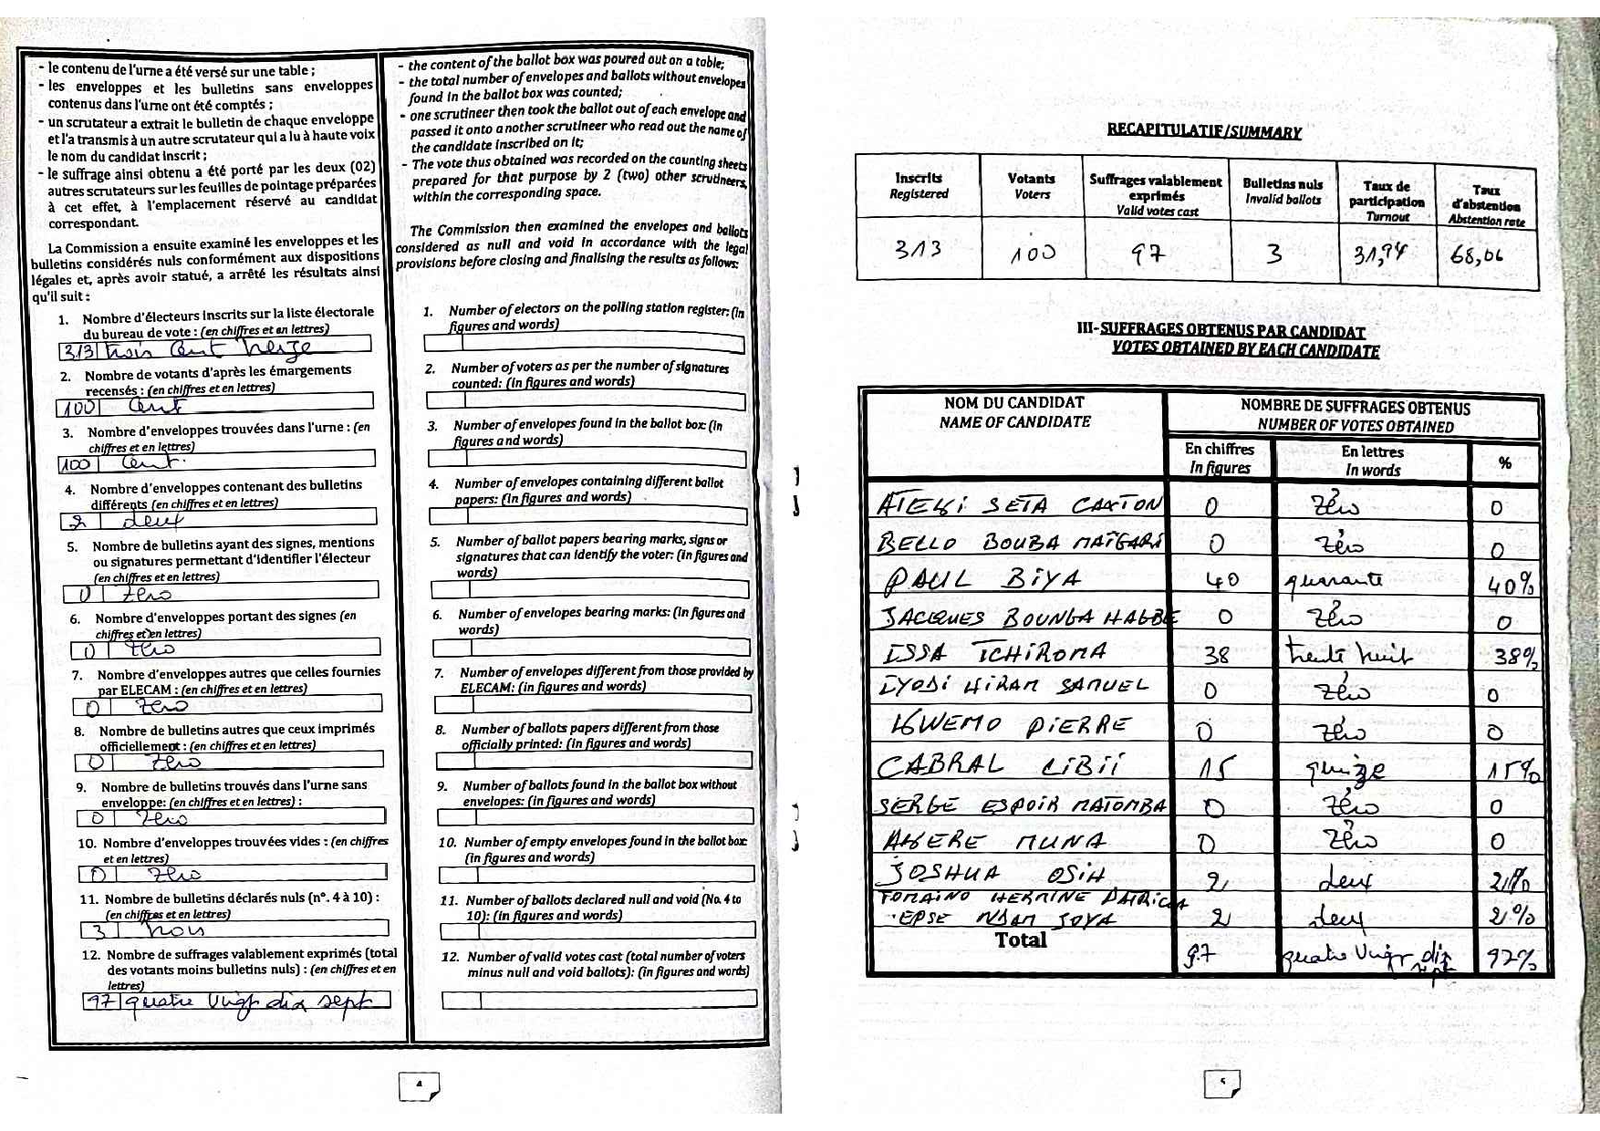 - le contenu de l'urne a été versé sur une table ;
- les enveloppes et les bulletins sans enveloppes
contenus dans l'urne ont été comptés ;
- un scrutateur a extrait le bulletin de chaque enveloppe
et l'a transmis à un autre scrutateur qui a lu à haute voix
le nom du candidat inscrit ;
- le suffrage ainsi obtenu a été porté par les deux (02)
autres scrutateurs sur les feuilles de pointage préparées
à cet effet, à l'emplacement réservé au candidat
correspondant.
La Commission a ensuite examiné les enveloppes et les
bulletins considérés nuls conformément aux dispositions
légales et, après avoir statué, a arrêté les résultats ainsi
qu'il suit :
1. Nombre d'électeurs inscrits sur la liste électorale
du bureau de vote : (en chiffres et en lettres)
313 trois cent treize
2. Nombre de votants d'après les émargements
recensés : (en chiffres et en lettres)
100 cent
3. Nombre d'enveloppes trouvées dans l'urne : (en
chiffres et en lettres)
100 cent.
4. Nombre d'enveloppes contenant des bulletins
différents (en chiffres et en lettres)
deux
5. Nombre de bulletins ayant des signes, mentions
ou signatures permettant d'identifier l'électeur
(en chiffres et en lettres)
0 zéro
6. Nombre d'enveloppes portant des signes (en
chiffres et en lettres)
0 zéro
7. Nombre d'enveloppes autres que celles fournies
par ELECAM : (en chiffres et en lettres)
0 zéro
8. Nombre de bulletins autres que ceux imprimés
officiellement : (en chiffres et en lettres)
0 zéro
9. Nombre de bulletins trouvés dans l'urne sans
enveloppe: (en chiffres et en lettres) :
0 zéro
10. Nombre d'enveloppes trouvées vides : (en chiffres
et en lettres)
0 zéro
11. Nombre de bulletins déclarés nuls (n°. 4 à 10) :
(en chiffres et en lettres)
3 trois
12. Nombre de suffrages valablement exprimés (total
des votants moins bulletins nuls) : (en chiffres et en
lettres)
97 quatre vingt dix sept
- the content of the ballot box was poured out on a table;
- the total number of envelopes and ballots without envelopes
found in the ballot box was counted;
- one scrutineer then took the ballot out of each envelope and
passed it onto another scrutineer who read out the name of
the candidate inscribed on it;
- The vote thus obtained was recorded on the counting sheets
prepared for that purpose by 2 (two) other scrutineers,
within the corresponding space.
The Commission then examined the envelopes and ballots
considered as null and void in accordance with the legal
provisions before closing and finalising the results as follows:
1. Number of electors on the polling station register: (in
figures and words)
2. Number of voters as per the number of signatures
counted: (in figures and words)
3. Number of envelopes found in the ballot box: (in
figures and words)
4. Number of envelopes containing different ballot
papers: (in figures and words)
5. Number of ballot papers bearing marks, signs or
signatures that can identify the voter: (in figures and
words)
6. Number of envelopes bearing marks: (in figures and
words)
7. Number of envelopes different from those provided by
ELECAM: (in figures and words)
8. Number of ballots papers different from those
officially printed: (in figures and words)
9. Number of ballots found in the ballot box without
envelopes: (in figures and words)
10. Number of empty envelopes found in the ballot box:
(in figures and words)
11. Number of ballots declared null and void (No. 4 to
10): (in figures and words)
12. Number of valid votes cast (total number of voters
minus null and void ballots): (in figures and words)
4
RECAPITULATIF/SUMMARY
Inscrits Registered Votants Voters Suffrages valablement exprimés Valid votes cast Bulletins nuls Invalid ballots Taux de participation Turnout Taux d'abstention Abstention rate
313 100 97 3 31,94 68,06
III- SUFFRAGES OBTENUS PAR CANDIDAT
VOTES OBTAINED BY EACH CANDIDATE
NOM DU CANDIDAT NOMBRE DE SUFFRAGES OBTENUS
NAME OF CANDIDATE NUMBER OF VOTES OBTAINED
En chiffres En lettres %
In figures In words
ATEKI SETA CAXTON 0 Zéro 0
BELLO BOUBA MAÏGARI 0 Zéro 0
PAUL BIYA 40 quarante 40%
JACQUES BOUNGA HAGBE 0 Zéro 0
ISSA TCHIROMA 38 trente huit 38%
IYODI HIRAM SAMUEL 0 zéro 0
KWEMO PIERRE 0 zéro 0
CABRAL LIBII 15 quinze 15%
SERGE ESPOIR MATOMBA 0 Zéro 0
AKERE MUNA 0 Zéro 0
JOSHUA OSIH 2 deux 2%
TOMAINO HERMINE PATRICIA
EPSE NDAM JOYA 2 deux 2%
Total 97 quatre vingt dix sept 97%
5